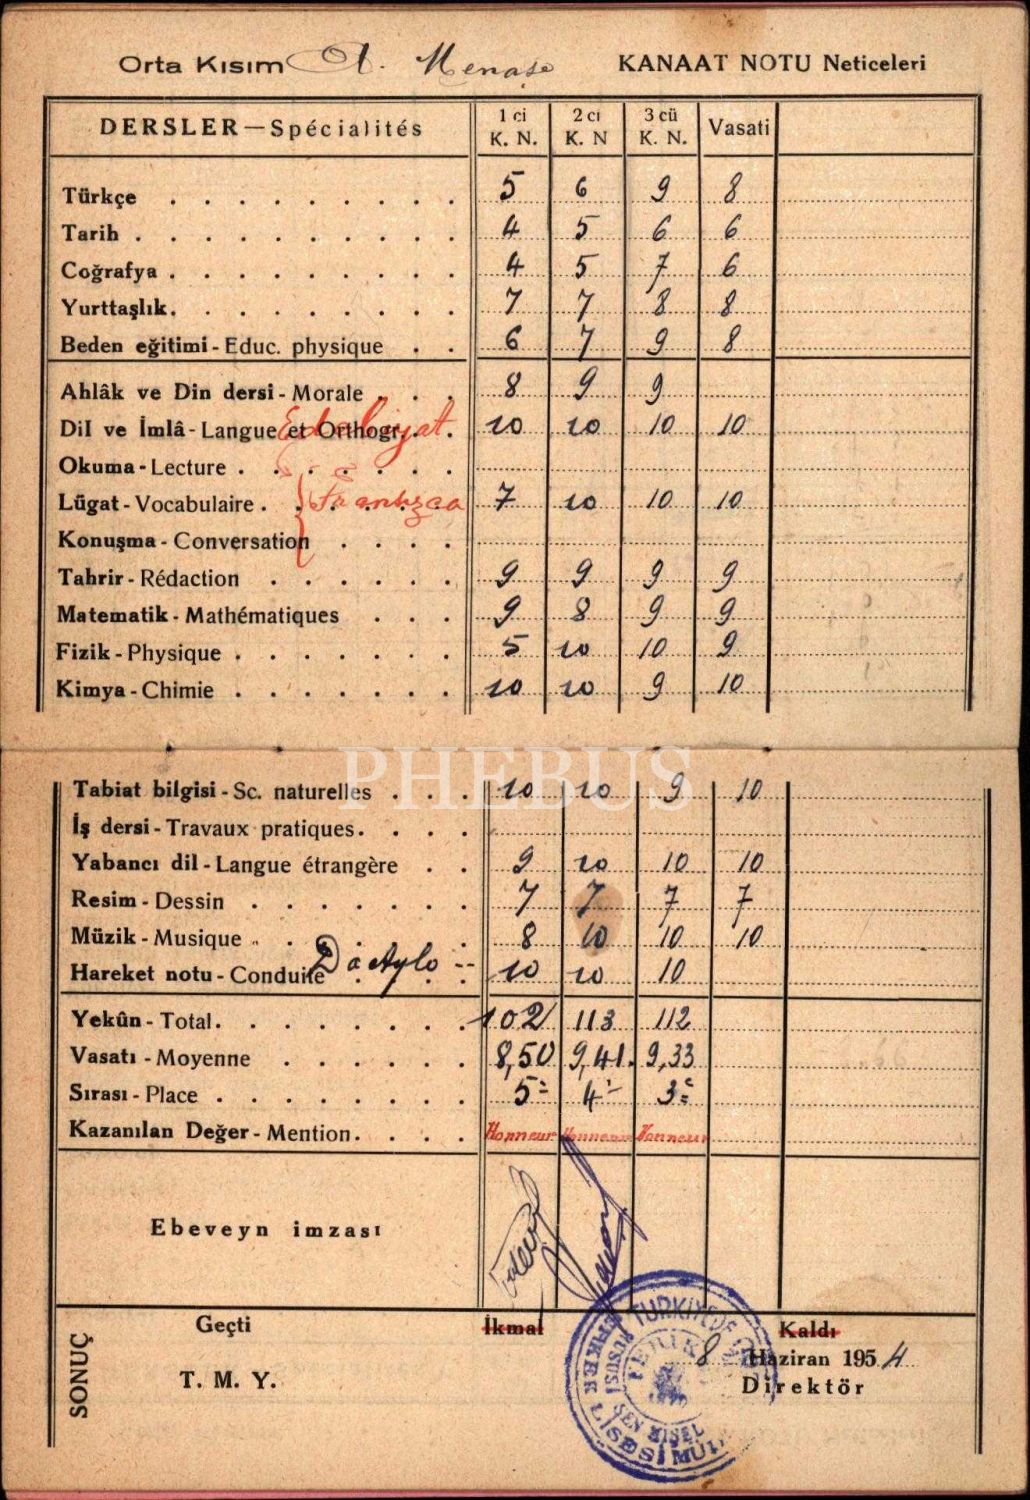 Orta Kısım A. Menaşe KANAAT NOTU Neticeleri
DERSLER — Spécialités 1 ci K. N. 2 cı K. N 3 cü K. N. Vasati
Türkçe . . . . . . . . . 5 6 9 8
Tarih . . . . . . . . . . 4 5 6 6
Coğrafya . . . . . . . . . 4 5 7 6
Yurttaşlık. . . . . . . . . 7 7 8 8
Beden eğitimi - Educ. physique . . 6 7 9 8
Ahlâk ve Din dersi - Morale . . . 8 9 9
Dil ve İmlâ - Langue et Orthogr. . . Edebiyat 10 10 10 10
Okuma - Lecture . . . . . . .
Lûgat - Vocabulaire . . . . . . Fransızca 7 10 10 10
Konuşma - Conversation . . . .
Tahrir - Rédaction . . . . . . 9 9 9 9
Matematik - Mathématiques . . . 9 8 9 9
Fizik - Physique . . . . . . . 5 10 10 9
Kimya - Chimie . . . . . . . 10 10 9 10
PHEBUS
Tabiat bilgisi - Sc. naturelles . . . 10 10 9 10
İş dersi - Travaux pratiques. . . .
Yabancı dil - Langue étrangère . . 9 10 10 10
Resim - Dessin . . . . . . . 7 7 7 7
Müzik - Musique . . . . . . 8 10 10 10
Hareket notu - Conduite Dactylo 10 10 10
Yekûn - Total. . . . . . . . 102 113 112
Vasatı - Moyenne . . . . . . 8,50 9,41. 9,33
Sırası - Place . . . . . . . . 5= 4= 3=
Kazanılan Değer - Mention. . . . Honneur Honneur Honneur
Ebeveyn imzası
SONUÇ
Geçti İkmal Kaldı
8 Haziran 1954
T. M. Y. Direktör
TÜRKİYEDE
LİSESİ